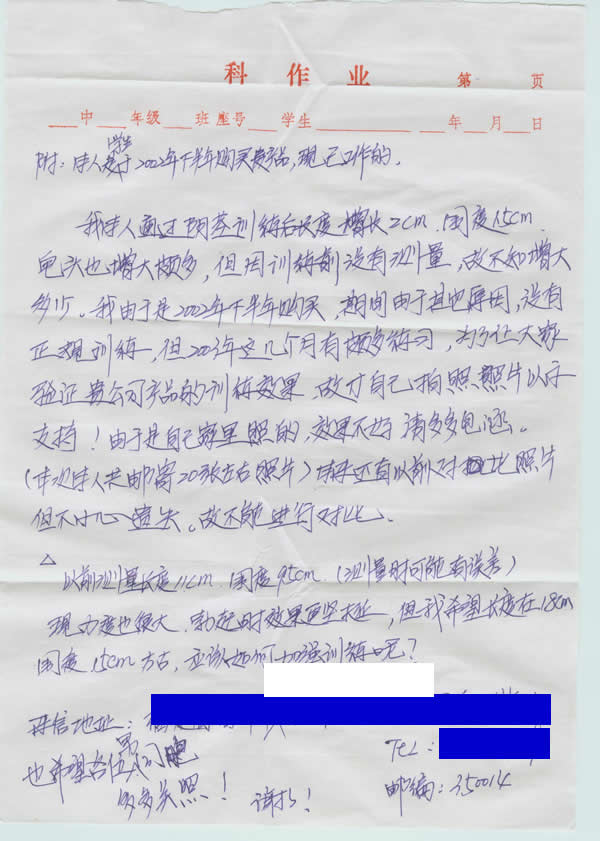 科 作 业 第 页
中 年级 班 座号 学生 年 月 日
学生
附：本人是于2002年下半年购买贵产品，现已工作的。
我本人通过 训练后长度增长2cm．围度1.5cm．
龟头也增大颇多，但因训练前没有测量，故不知增大
多少。我由于是2002年下半年购买，期间由于其他原因，没有
正规训练，但2003年这几个月有颇多练习，为了让大家
验证贵公司产品的训练效果，故才自己拍照 照片以予
支持！由于是自己家里照的，效果不好 请多多包涵。
（本次本人共邮寄20张左右照片）本来还有以前对比照片
但不小心遗失。故不能进行对比。
△
以前测量长度11cm．围度9.5cm．（测量时可能有误差）
现力度也很大．勃起时效果更坚挺，但我希望长度在18cm
围度15cm左右，应该如何加强训练呢？
地址：
TeL：
也希望各位 们
多多关照！ 谢谢！ 邮编：350014